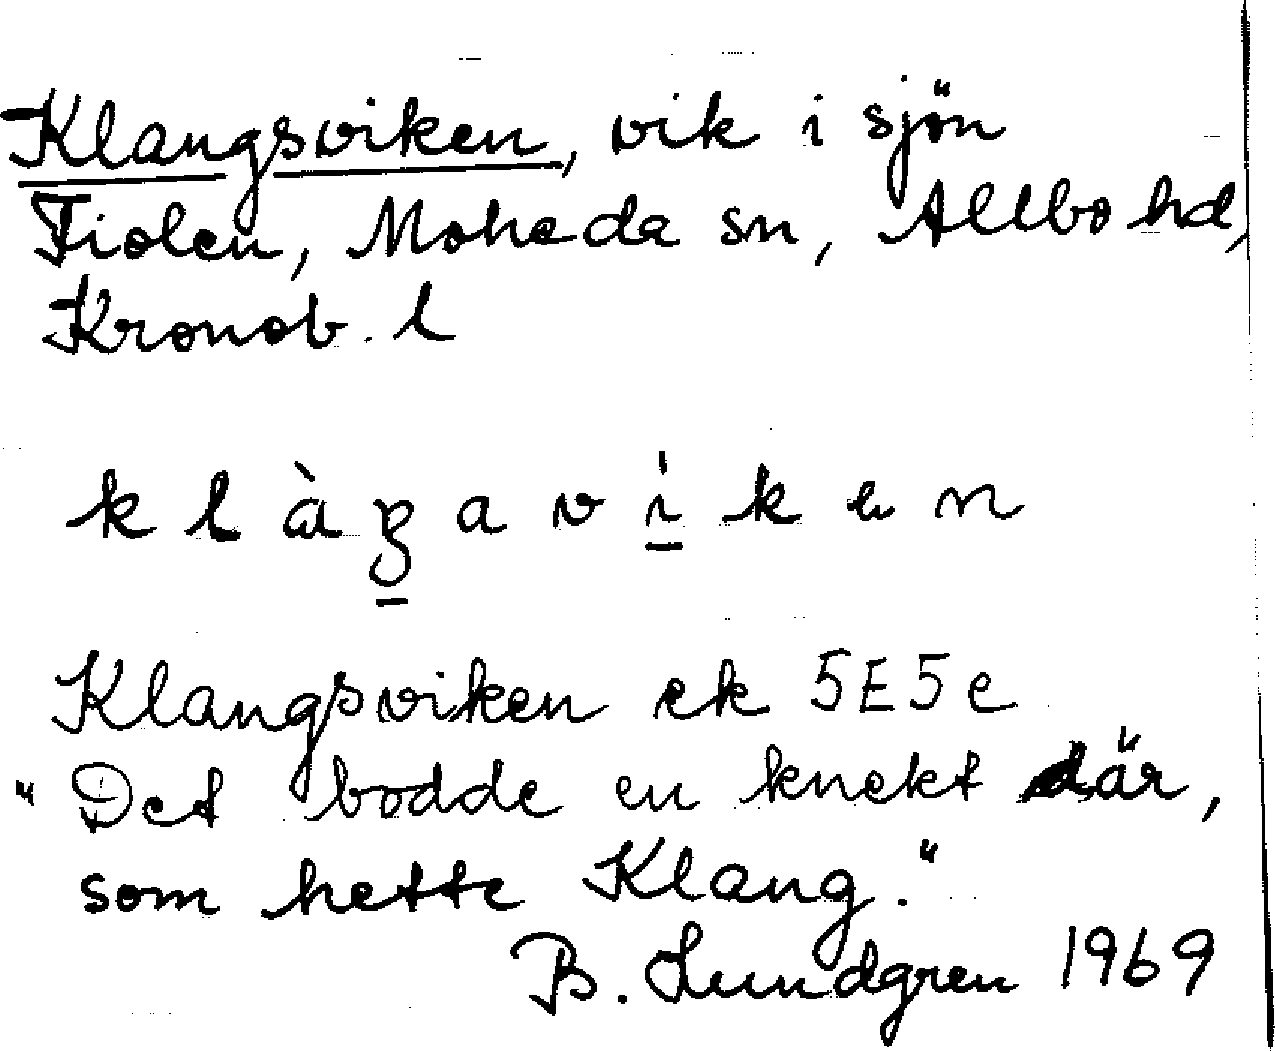 Klangsviken, vik i sjön
Fiolen, Moheda sn, Allbo hd,
Kronob. l
k l à ʓ̱ a v i̱̍ k e n
Klangsviken ek 5E5e
"Det bodde en knekt där,
som hette Klang."
B. Lundgren 1969